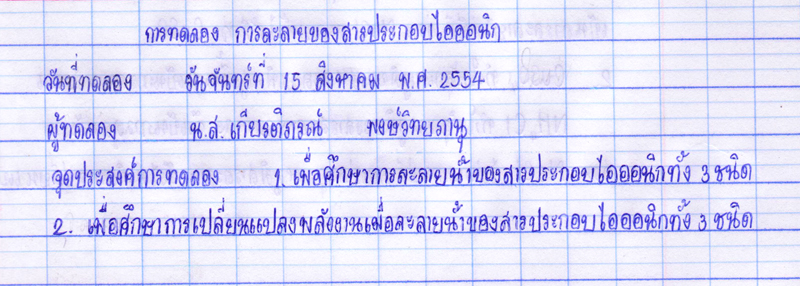 การทดลอง การละลายของสารประกอบไอออนิก
วันที่ทดลอง วันจันทร์ที่ 15 สิงหาคม พ.ศ. 2554
ผู้ทดลอง น.ส. เกียรติภรณ์ พงษ์วิทยภานุ
จุดประสงค์การทดลอง 1. เพื่อศึกษาการละลายน้ำของสารประกอบไอออนิกทั้ง 3 ชนิด
2. เพื่อศึกษาการเปลี่ยนแปลงพลังงานเมื่อละลายน้ำของสารประกอบไอออนิกทั้ง 3 ชนิด